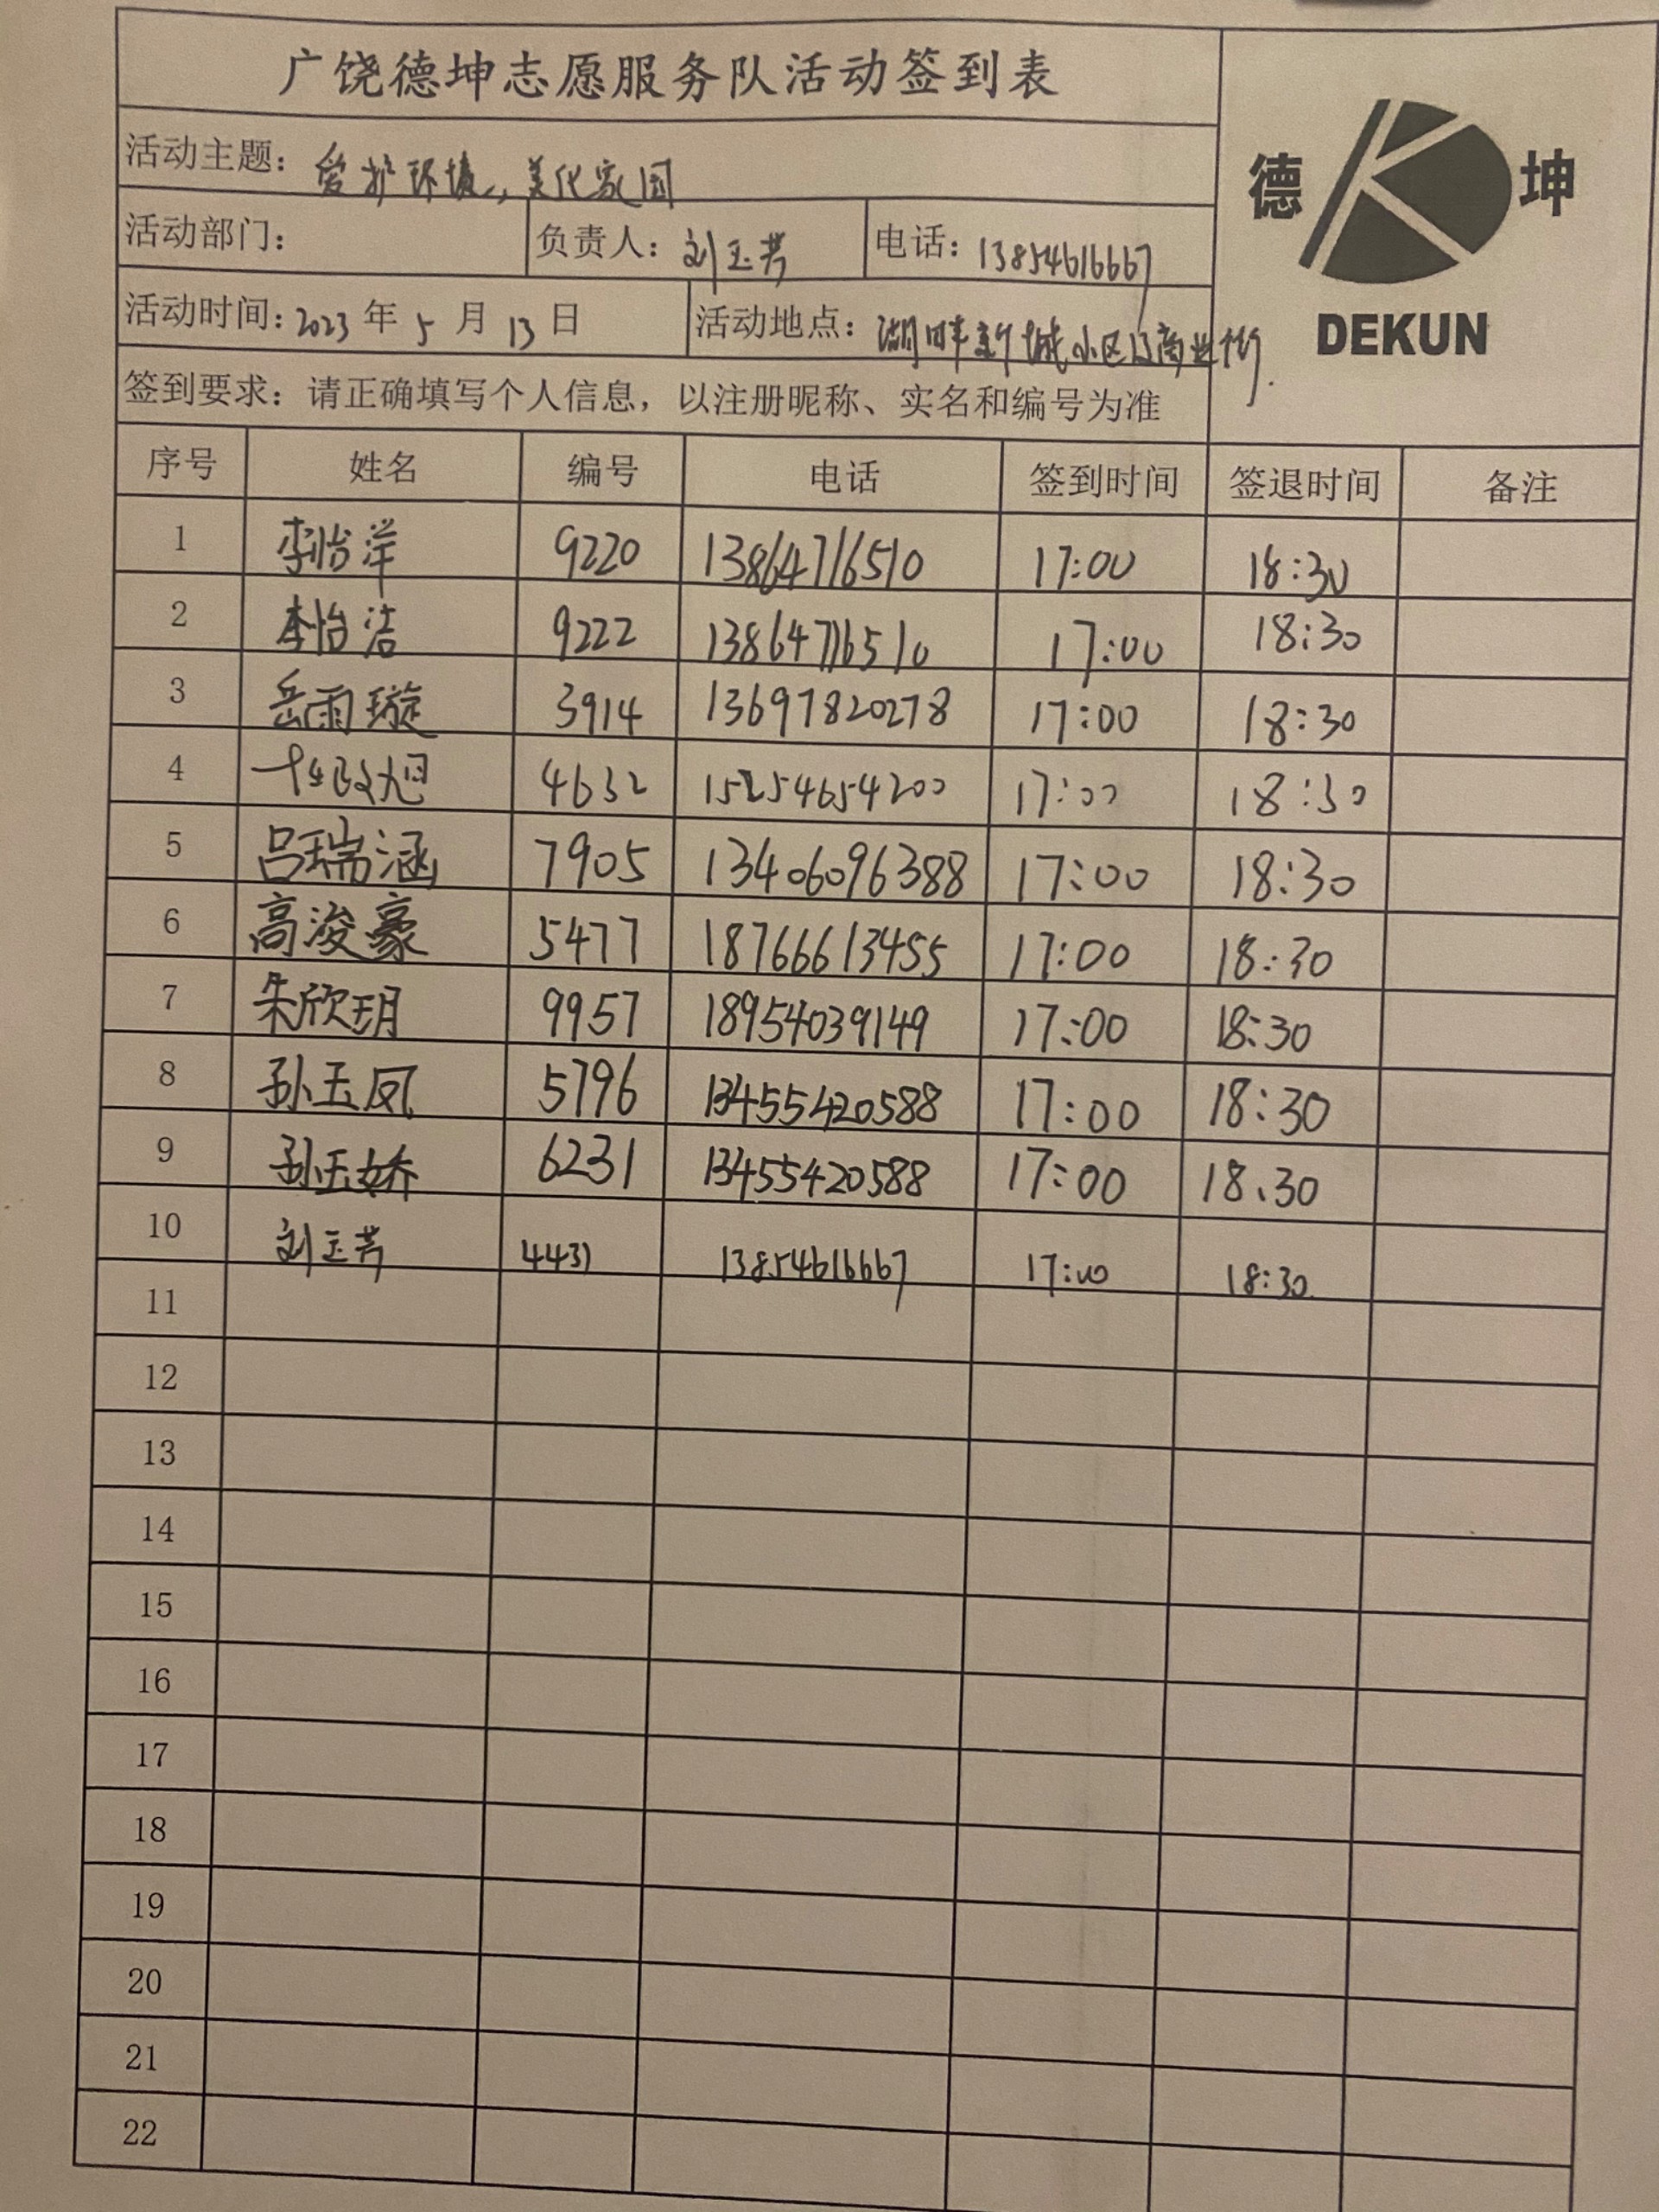 广饶德坤志愿服务队活动签到表
德 坤
DEKUN
活动主题：爱护环境，美化家园
活动部门： 负责人：刘玉芳 电话：13854616667
活动时间：2023年5月13日 活动地点：湖畔新城小区门商业街.
签到要求：请正确填写个人信息，以注册昵称、实名和编号为准
序号 姓名 编号 电话 签到时间 签退时间 备注
1 李怡洋 9220 13864716510 17:00 18:30
2 李怡洁 9222 13864716510 17:00 18:30
3 岳雨璇 3914 13697820278 17:00 18:30
4 4632 15254654200 17:00 18:30
5 吕瑞涵 7905 13406096388 17:00 18:30
6 高浚豪 5477 18766613455 17:00 18:30
7 朱欣玥 9957 18954039149 17:00 18:30
8 孙玉凤 5796 13455420588 17:00 18:30
9 孙玉娇 6231 13455420588 17:00 18:30
10 刘玉芳 4431 13854616667 17:00 18:30
11
12
13
14
15
16
17
18
19
20
21
22